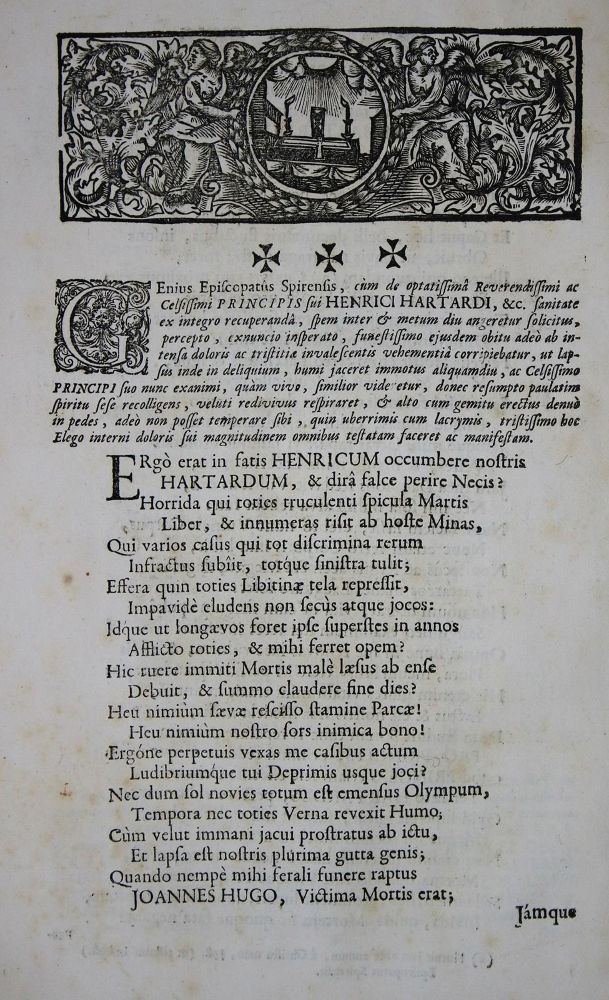 GEnius Episcopatûs Spirensis, cùm de optatissimâ Reverendissimi ac
Celsissimi PRINCIPIS sui HENRICI HARTARDI, &c. sanitate
ex integro recuperandâ, spem inter & metum diu angeretur solicitus,
percepto, exnuncio insperato, funestissimo ejusdem obitu adeò ab in-
tensa doloris ac tristitiæ invalescentis vehementiâ corripiebatur, ut lap-
sus inde in deliquium, humi jaceret immotus aliquamdiu, ac Celsissimo
PRINCIPI suo nunc exanimi, quàm vivo, similior videretur, donec resumpto paulatim
spiritu sese recolligens, veluti redivivus respiraret, & alto cum gemitu erectus denuò
in pedes, adeò non posset temperare sibi, quin uberrimis cum lacrymis, tristissimo hoc
Elego interni doloris sui magnitudinem omnibus testatam faceret ac manifestam.
ERgò erat in fatis HENRICUM occumbere nostris
HARTARDUM, & dirâ falce perire Necis?
Horrida qui toties truculenti spicula Martis
Liber, & innumeras risit ab hoste Minas,
Qui varios casus qui tot discrimina rerum
Infractus subîit, totque sinistra tulit;
Effera quin toties Libitinæ tela repressit,
Impavidè eludens non secùs atque jocos:
Idque ut longævos foret ipse superstes in annos
Afflicto toties, & mihi ferret opem?
Hic ruere immiti Mortis malè læsus ab ense
Debuit, & summo claudere fine dies?
Heu nimiùm sævæ rescisso stamine Parcæ!
Heu nimiùm nostro sors inimica bono!
Ergóne perpetuis vexas me casibus actum
Ludibriumque tui Deprimis usque joci?
Nec dum sol novies totum est emensus Olympum,
Tempora nec toties Verna revexit Humo;
Cùm velut immani jacui prostratus ab ictu,
Et lapsa est nostris plurima gutta genis;
Quando nempè mihi ferali funere raptus
JOANNES HUGO, Victima Mortis erat;
Jámque